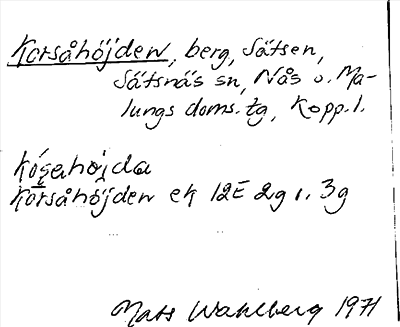 Korsåhöjden, berg, Sätsen,
Sätsnäs sn, Nås o. Ma-
lungs doms. tg, Kopp. l.
Kósahöjda
Korsåhöjden ek 12E 2g, 3g
Mats Wahlberg 1971